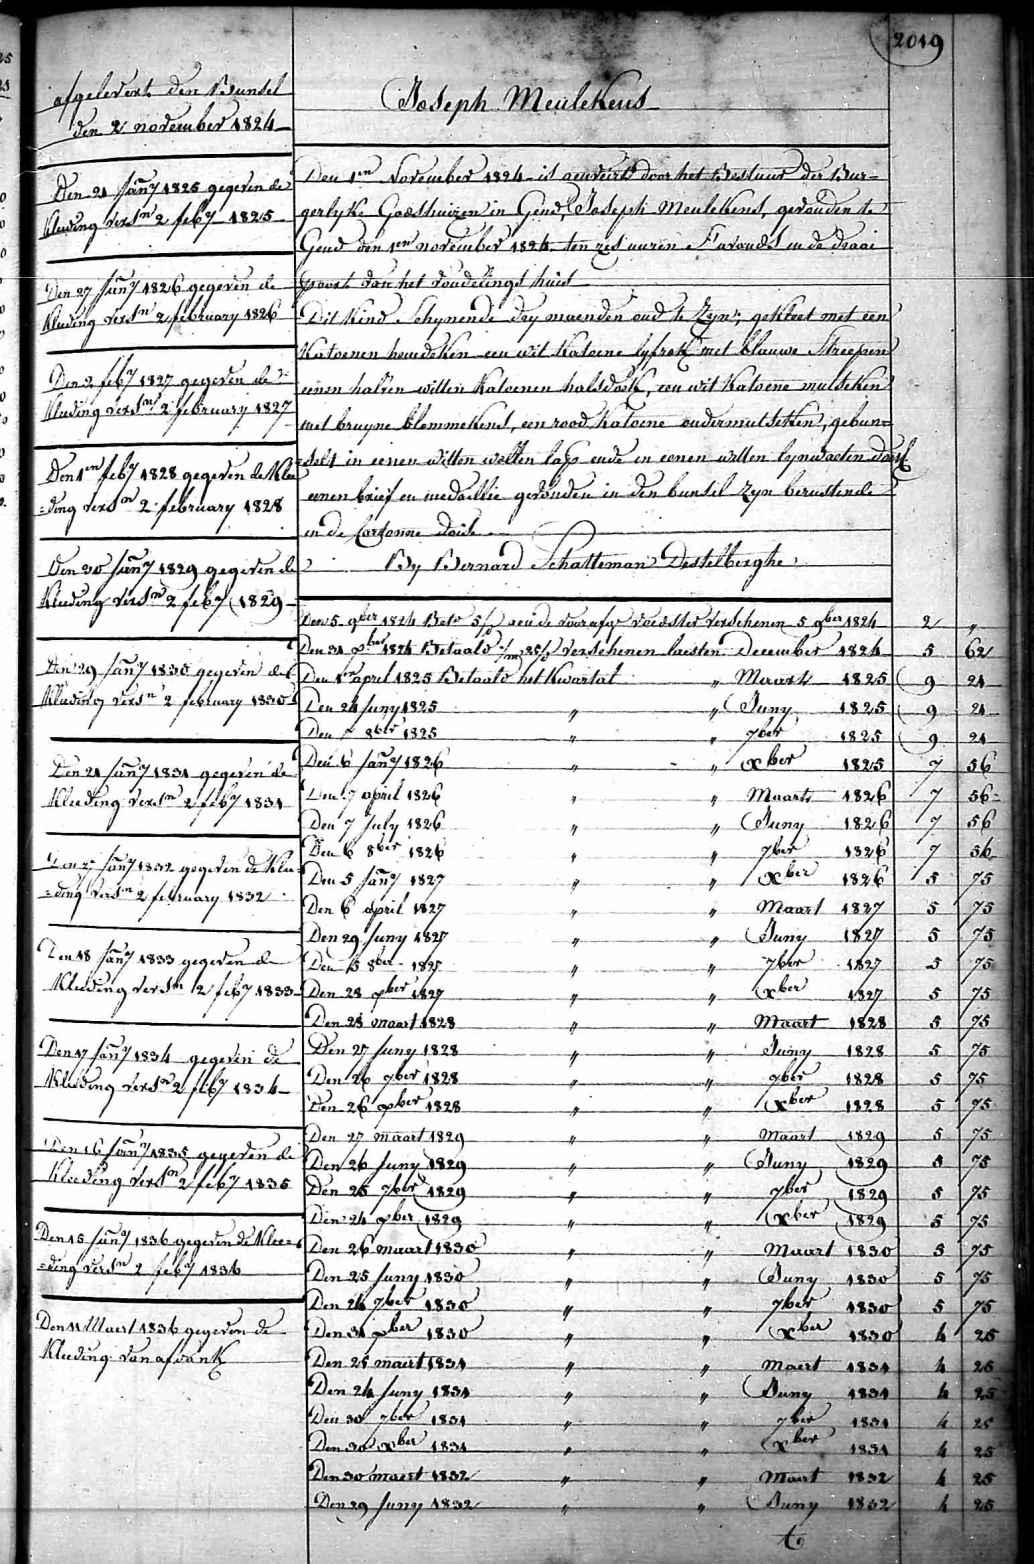 2019
afgelevert den Bunsel
den 2 november 1824
Den 21 Janry 1825 gegeven de
kleeding versn 2 feby 1825
Den 27 Jany 1826 gegeven de
kleeding versn 2 february 1826
Den 2 feby 1827 gegeven de
kleeding versn 2 february 1827
Den 1en feby 1828 gegeven de klee
=ding versn 2 february 1828
Den 30 Jany 1829 gegeven de
kleeding versn 2 feby 1829
Den 29 Jany 1830 gegeven de
kleeding versn 2 february 1830
Den 21 Jany 1831 gegeven de
kleeding versn 2 feby 1831
Jany 1832 gegeven de klee
=ding versn 2 february 1832
Den 18 Jany 1833 gegeven de
kleeding versn 2 feby 1833
Den 17 Jany 1834 gegeven de
kleeding versn 2 feby 1834
Den 16 Jany 1835 gegeven de
kleeding versn 2 feby 1835
Den 15 Jany 1836 gegeven de klee=
=ding versn 2 feby 1836
Den 11 Maert 1836 gegeven de
kleeding van afdank
Joseph Meulekens
Den 1en November 1824 is door het Bestuer der Bur=
gerlyke Godshuizen in Gend, Joseph Meulekens, gevonden te
Gend den 1en november 1824 ten zes uuren s'avonds in de draai
poort van het vondelings huis
Dit kind schynende dry maenden oud te zyn, gekleet met een
katoenen hemdeken een wit katoene lyfrok met blauwe streepen
eenen halven witten katoenen halsdoek, een wit katoene mutseken
met bruyne blommekens, een rood katoene ondermutseken, gebun=
=selt in eenen witten wollen lap ende in eenen wollen lynwaeten
eenen brief en medaellie gevonden in den bunsel zyn berustende
in de Cartonne doose
By Bernard Schatteman Destelberghe
Den 5 9ber 1824 Bete 5/ aen de voorafge voedster verschenen 5 9ber 1824 2 "
Den 31 xber 1824 Betaald verschenen laesten December 1824 5 62
Den 1 april 1825 Betaald het kwartal " Maart 1825 9 21
Den 24 Juny 1825 " " Juny 1825 9 21
Den 8ber 1825 " " 7ber 1825 9 21
Den 6 Jany 1826 " " xber 1825 7 56
Den 7 april 1826 " " Maart 1826 7 56
Den 7 July 1826 " " Juny 1826 7 56
Den 6 8ber 1826 " " 7ber 1826 7 56
Den 5 Jany 1827 " " xber 1826 5 75
Den 6 april 1827 " " Maart 1827 5 75
Den 29 Juny 1827 " " Juny 1827 5 75
Den 15 8ber 1827 " " 7ber 1827 5 75
Den 28 xber 1827 " " xber 1827 5 75
Den 28 maart 1828 " " Maart 1828 5 75
Den 27 Juny 1828 " " Juny 1828 5 75
Den 26 7ber 1828 " " 7ber 1828 5 75
Den 26 xber 1828 " " xber 1828 5 75
Den 27 maart 1829 " " Maart 1829 5 75
Den 26 Juny 1829 " " Juny 1829 5 75
Den 25 7ber 1829 " " 7ber 1829 5 75
Den 24 xber 1829 " " xber 1829 5 75
Den 26 maart 1830 " " Maart 1830 5 75
Den 25 Juny 1830 " " Juny 1830 5 75
Den 24 7ber 1830 " " 7ber 1830 5 75
Den 31 xber 1830 " " xber 1830 4 25
Den 25 maert 1831 " " Maert 1831 4 25
Den 24 Juny 1831 " " Juny 1831 4 25
Den 30 7ber 1831 " " 7ber 1831 4 25
Den 30 xber 1831 " " xber 1831 4 25
Den 30 maert 1832 " " Maert 1832 4 25
Den 29 Juny 1832 " " Juny 1832 4 25